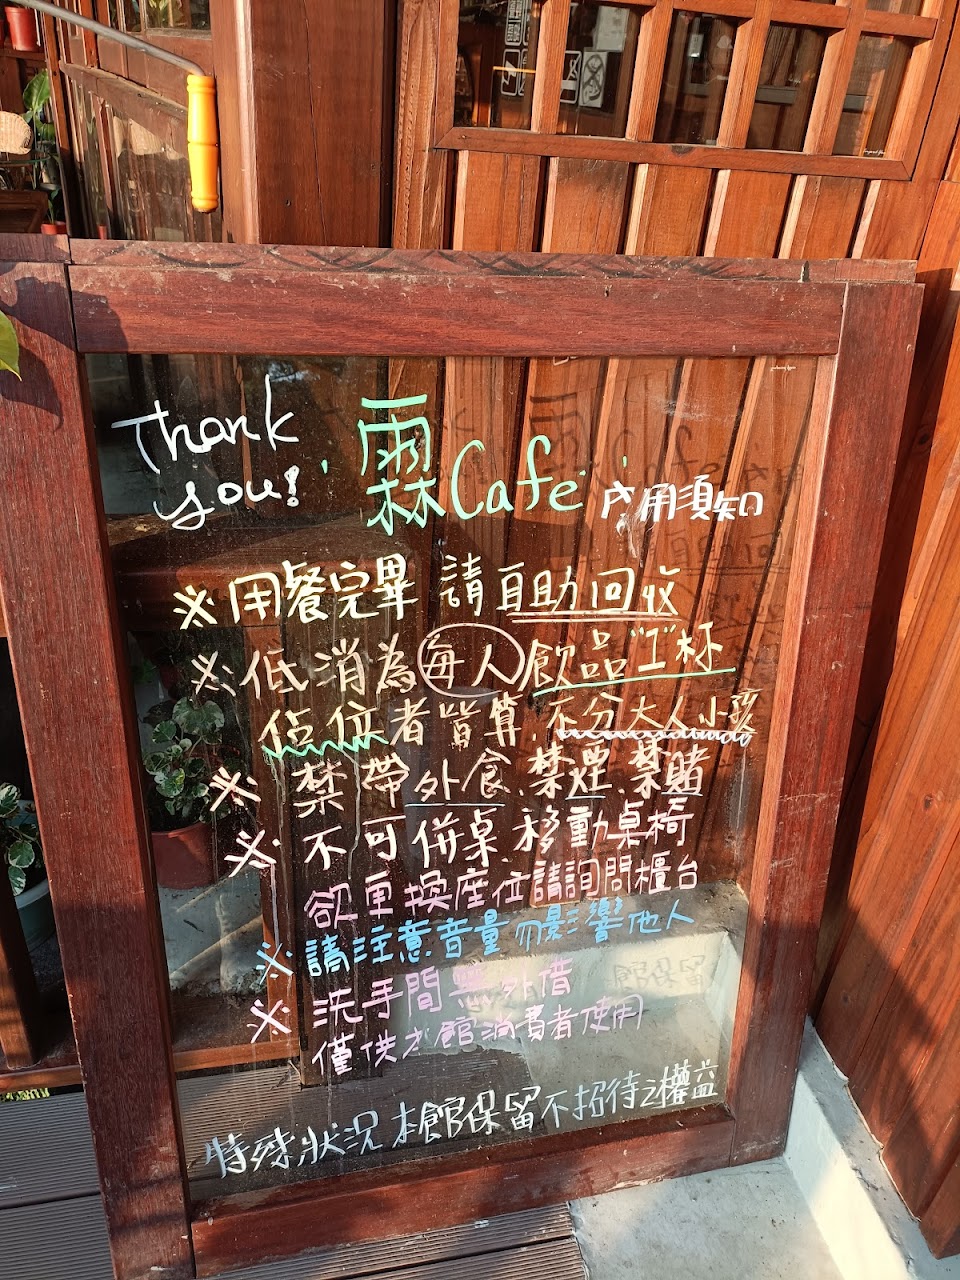 Thank you!
霖Cafe 內用須知
※用餐完畢 請自助回收
※低消為每人飲品"1"杯
佔位者皆算,不分大人小孩
※禁帶外食、禁煙、禁賭
※不可併桌、移動桌椅
欲更換座位請詢問櫃台
※請注意音量勿影響他人
※洗手間無外借
僅供本館消費者使用
特殊狀況 本館保留不招待之權益